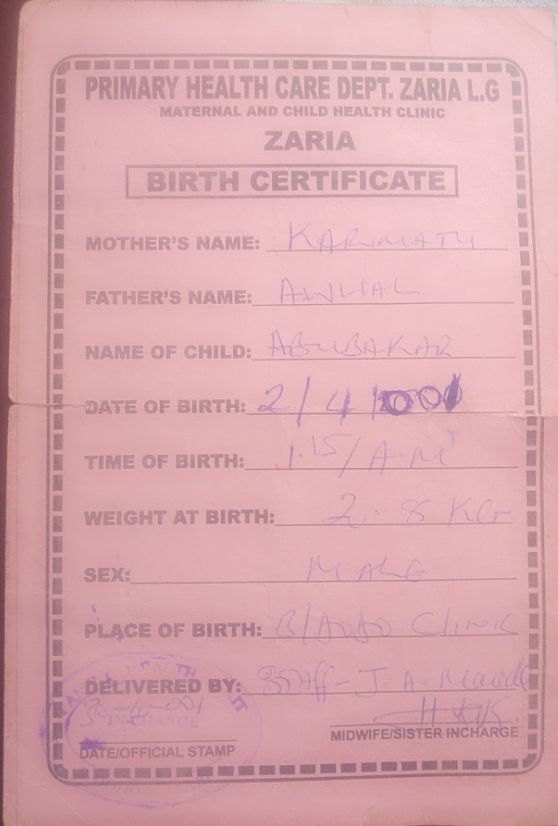 PRIMARY HEALTH CARE DEPT. ZARIA L.G
MATERNAL AND CHILD HEALTH CLINIC
ZARIA
BIRTH CERTIFICATE
MOTHER'S NAME: KARIMATU
FATHER'S NAME: AWWAL
NAME OF CHILD: ABUBAKAR
DATE OF BIRTH: 2/4/
TIME OF BIRTH: 1.15/A.M
WEIGHT AT BIRTH: 2.8 KG
SEX: MALE
PLACE OF BIRTH: Clinic
DELIVERED BY: Staff- J. A.
INCHARGE
MIDWIFE/SISTER INCHARGE
DATE/OFFICIAL STAMP